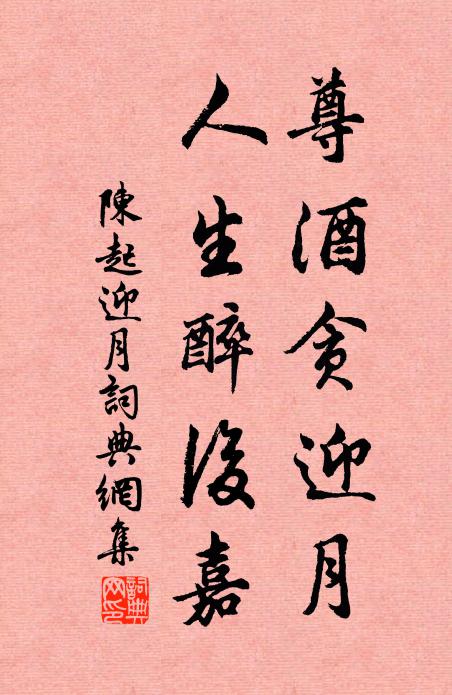 尊酒貪迎月
人生醉後嘉
陳起迎月詞典網集
詞典網印